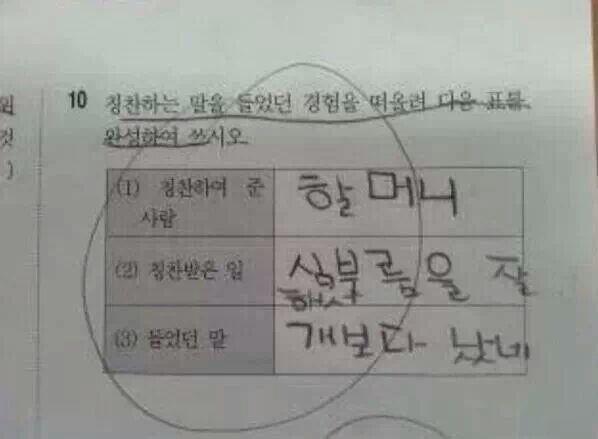 10 칭찬하는 말을 들었던 경험을 떠올려 다음 표를
완성하여 쓰시오
(1) 칭찬하여 준
사람
할머니
(2) 칭찬받은 일
심부름을 잘
했ㅅ
(3) 들었던 말
개보다 낫네
것
)